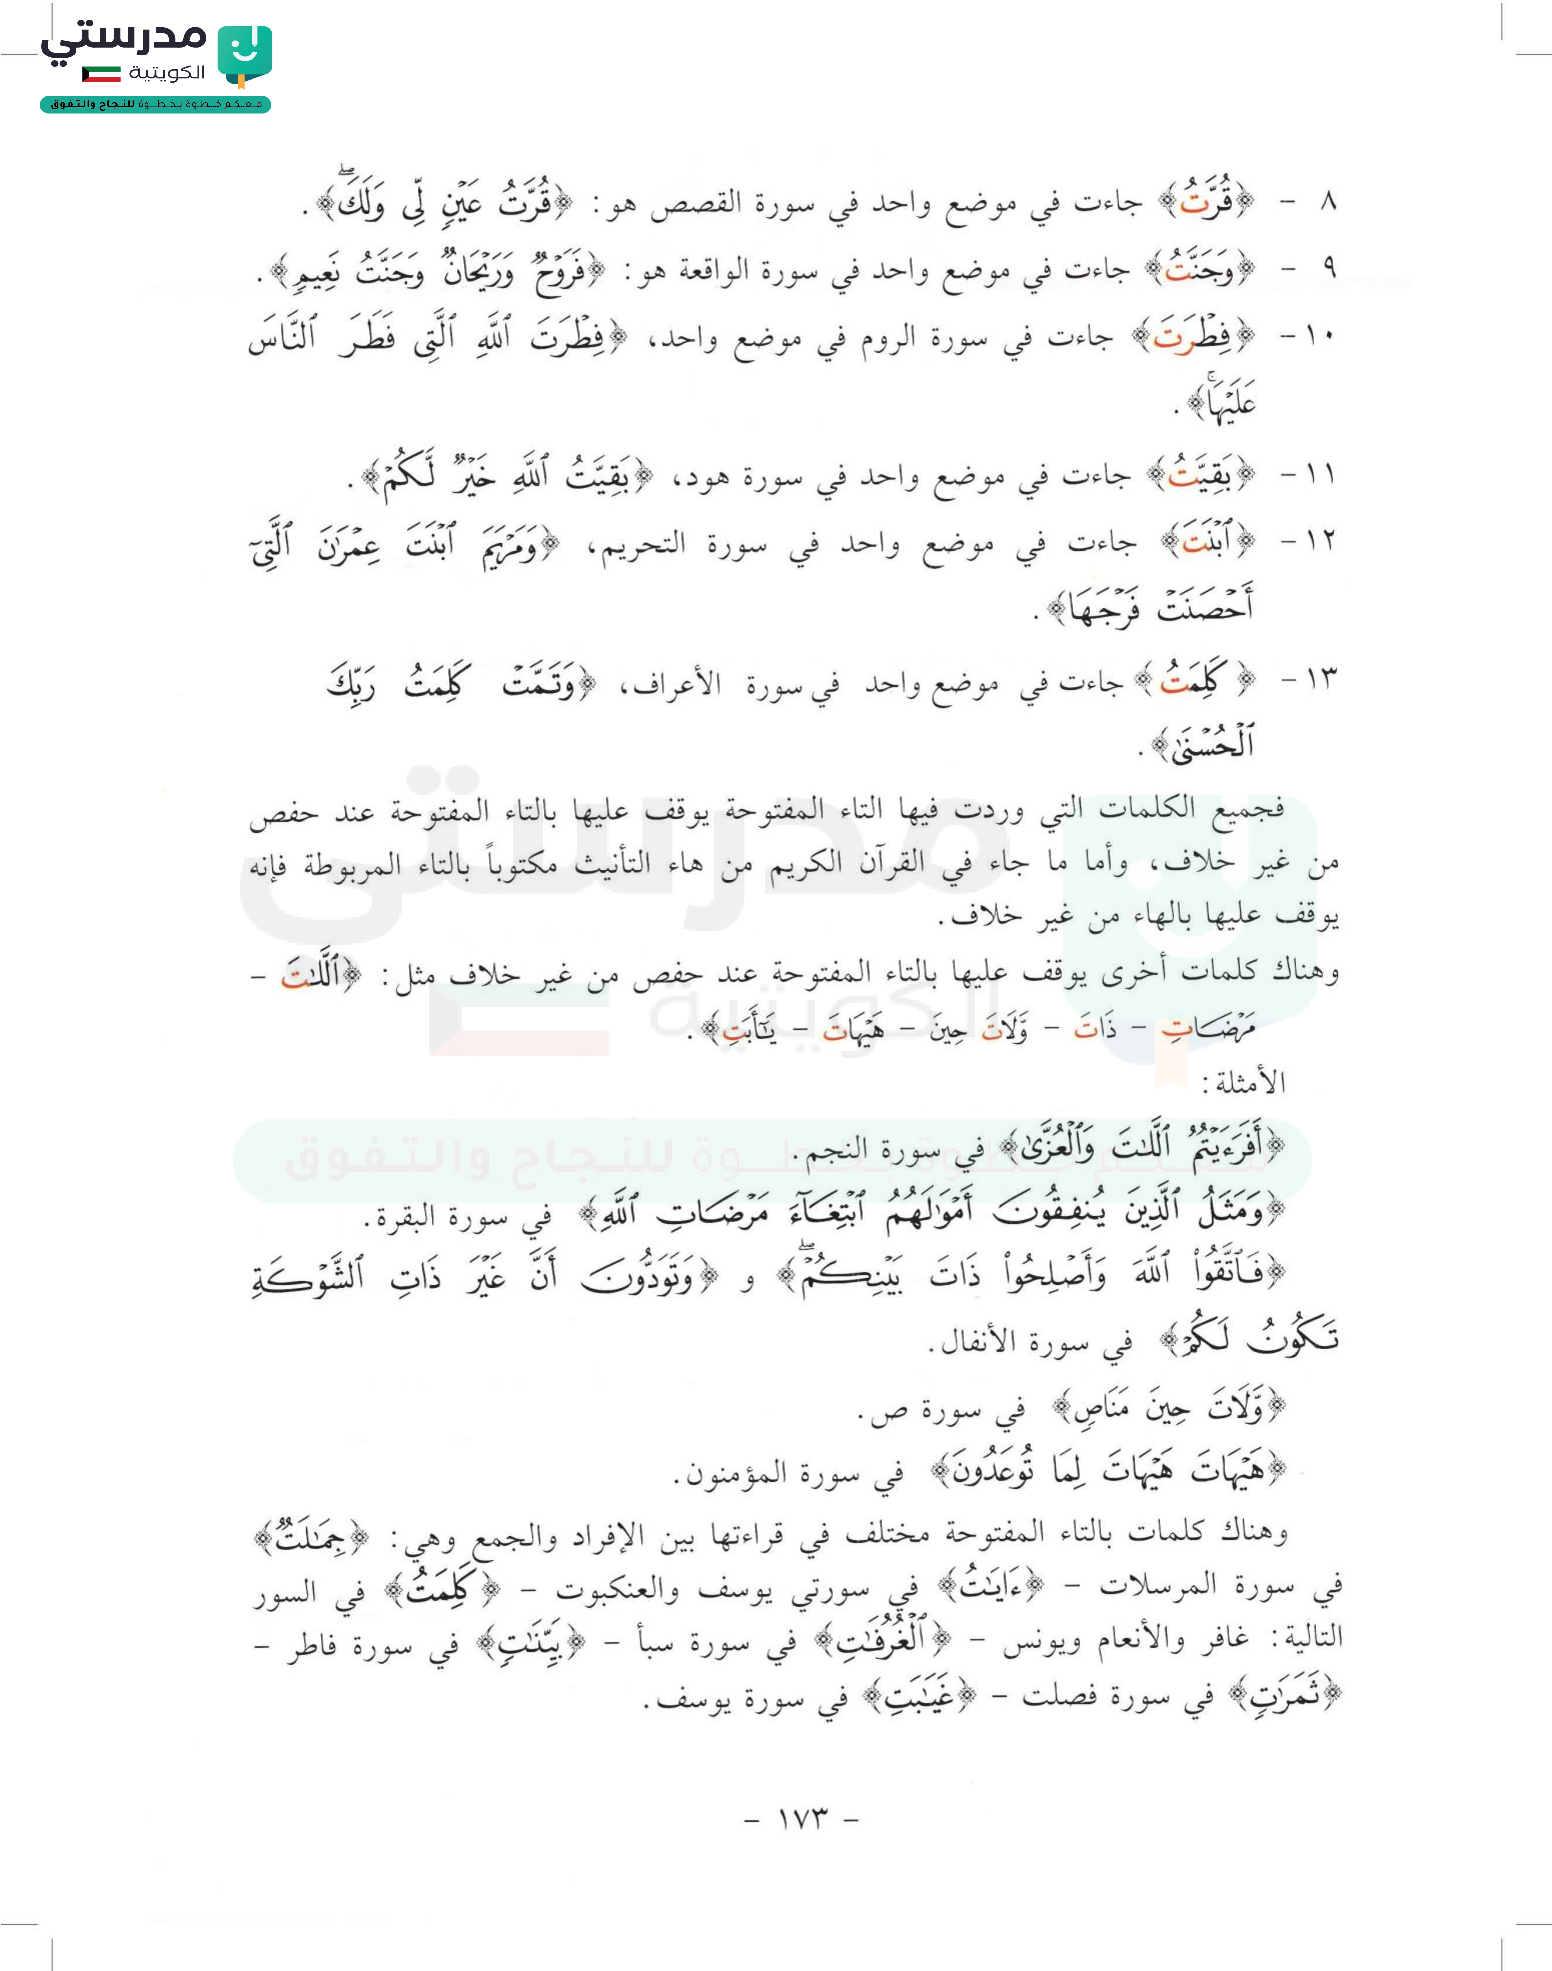 مدرستي
الكويتية
معكم خطوة بخطوة للنجاح والتفوق
٨ - ﴿قُرَّتُ﴾ جاءت في موضع واحد في سورة القصص هو: ﴿قُرَّتُ عَيۡنٖ لِّي وَلَكَۖ﴾.
٩ - ﴿وَجَنَّتُ﴾ جاءت في موضع واحد في سورة الواقعة هو: ﴿فَرَوۡحٞ وَرَيۡحَانٞ وَجَنَّتُ نَعِيمٖ﴾.
١٠- ﴿فِطۡرَتَ﴾ جاءت في سورة الروم في موضع واحد، ﴿فِطۡرَتَ ٱللَّهِ ٱلَّتِي فَطَرَ ٱلنَّاسَ
عَلَيۡهَاۚ﴾.
١١- ﴿بَقِيَّتُ﴾ جاءت في موضع واحد في سورة هود، ﴿بَقِيَّتُ ٱللَّهِ خَيۡرٞ لَّكُمۡ﴾.
١٢- ﴿ٱبۡنَتَ﴾ جاءت في موضع واحد في سورة التحريم، ﴿وَمَرۡيَمَ ٱبۡنَتَ عِمۡرَٰنَ ٱلَّتِيٓ
أَحۡصَنَتۡ فَرۡجَهَا﴾.
١٣- ﴿كَلِمَتُ﴾ جاءت في موضع واحد في سورة الأعراف، ﴿وَتَمَّتۡ كَلِمَتُ رَبِّكَ
ٱلۡحُسۡنَىٰ﴾.
فجميع الكلمات التي وردت فيها التاء المفتوحة يوقف عليها بالتاء المفتوحة عند حفص
من غير خلاف، وأما ما جاء في القرآن الكريم من هاء التأنيث مكتوباً بالتاء المربوطة فإنه
يوقف عليها بالهاء من غير خلاف.
وهناك كلمات أخرى يوقف عليها بالتاء المفتوحة عند حفص من غير خلاف مثل: ﴿ٱللَّٰتَ -
مَرۡضَاتِ - ذَاتَ - وَّلَاتَ حِينَ - هَيۡهَاتَ - يَٰٓأَبَتِ﴾.
الأمثلة:
﴿أَفَرَءَيۡتُمُ ٱللَّٰتَ وَٱلۡعُزَّىٰ﴾ في سورة النجم.
﴿وَمَثَلُ ٱلَّذِينَ يُنفِقُونَ أَمۡوَٰلَهُمُ ٱبۡتِغَآءَ مَرۡضَاتِ ٱللَّهِ﴾ في سورة البقرة.
﴿فَٱتَّقُواْ ٱللَّهَ وَأَصۡلِحُواْ ذَاتَ بَيۡنِكُمۡۖ﴾ و ﴿وَتَوَدُّونَ أَنَّ غَيۡرَ ذَاتِ ٱلشَّوۡكَةِ
تَكُونُ لَكُمۡ﴾ في سورة الأنفال.
﴿وَّلَاتَ حِينَ مَنَاصٖ﴾ في سورة ص.
﴿هَيۡهَاتَ هَيۡهَاتَ لِمَا تُوعَدُونَ﴾ في سورة المؤمنون.
وهناك كلمات بالتاء المفتوحة مختلف في قراءتها بين الإفراد والجمع وهي: ﴿جِمَٰلَتٞ﴾
في سورة المرسلات - ﴿ءَايَٰتُ﴾ في سورتي يوسف والعنكبوت - ﴿كَلِمَتُ﴾ في السور
التالية: غافر والأنعام ويونس - ﴿ٱلۡغُرُفَٰتِ﴾ في سورة سبأ - ﴿بَيِّنَٰتٖ﴾ في سورة فاطر -
﴿ثَمَرَٰتٖ﴾ في سورة فصلت - ﴿غَيَٰبَتِ﴾ في سورة يوسف.
- ١٧٣ -